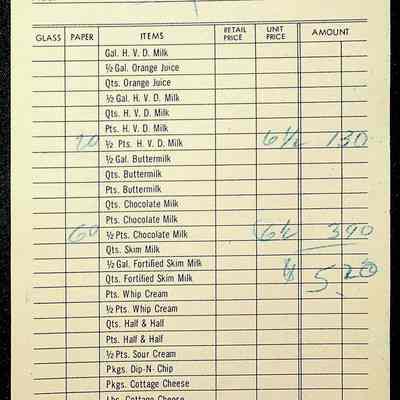 GLASS PAPER ITEMS RETAIL PRICE UNIT PRICE AMOUNT
Gal. H. V. D. Milk
½ Gal. Orange Juice
Qts. Orange Juice
½ Gal. H. V. D. Milk
Qts. H. V. D. Milk
Pts. H. V. D. Milk
20 ½ Pts. H. V. D. Milk 6½ 130
½ Gal. Buttermilk
Qts. Buttermilk
Pts. Buttermilk
Qts. Chocolate Milk
Pts. Chocolate Milk
60 ½ Pts. Chocolate Milk 6½ 390
Qts. Skim Milk
½ Gal. Fortified Skim Milk $ 5.20
Qts. Fortified Skim Milk
Pts. Whip Cream
½ Pts. Whip Cream
Qts. Half & Half
Pts. Half & Half
½ Pts. Sour Cream
Pkgs. Dip-N- Chip
Pkgs. Cottage Cheese
Lbs. Cottage Cheese